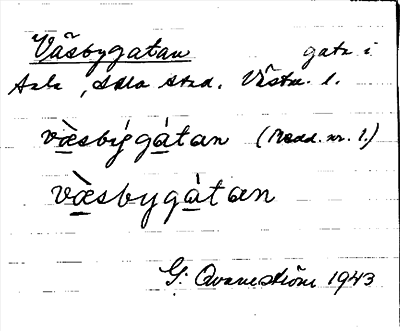 Väsbygatan gata i
Sala, Sala stad. Västm. l.
vä̀sbýgàtan (Medd. nr. 1.)
vä̀sbygàtan
G. Qvarnström 1943